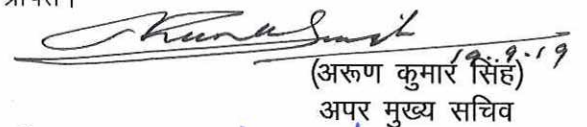 19.9.19
(अरूण कुमार सिंह)
अपर मुख्य सचिव